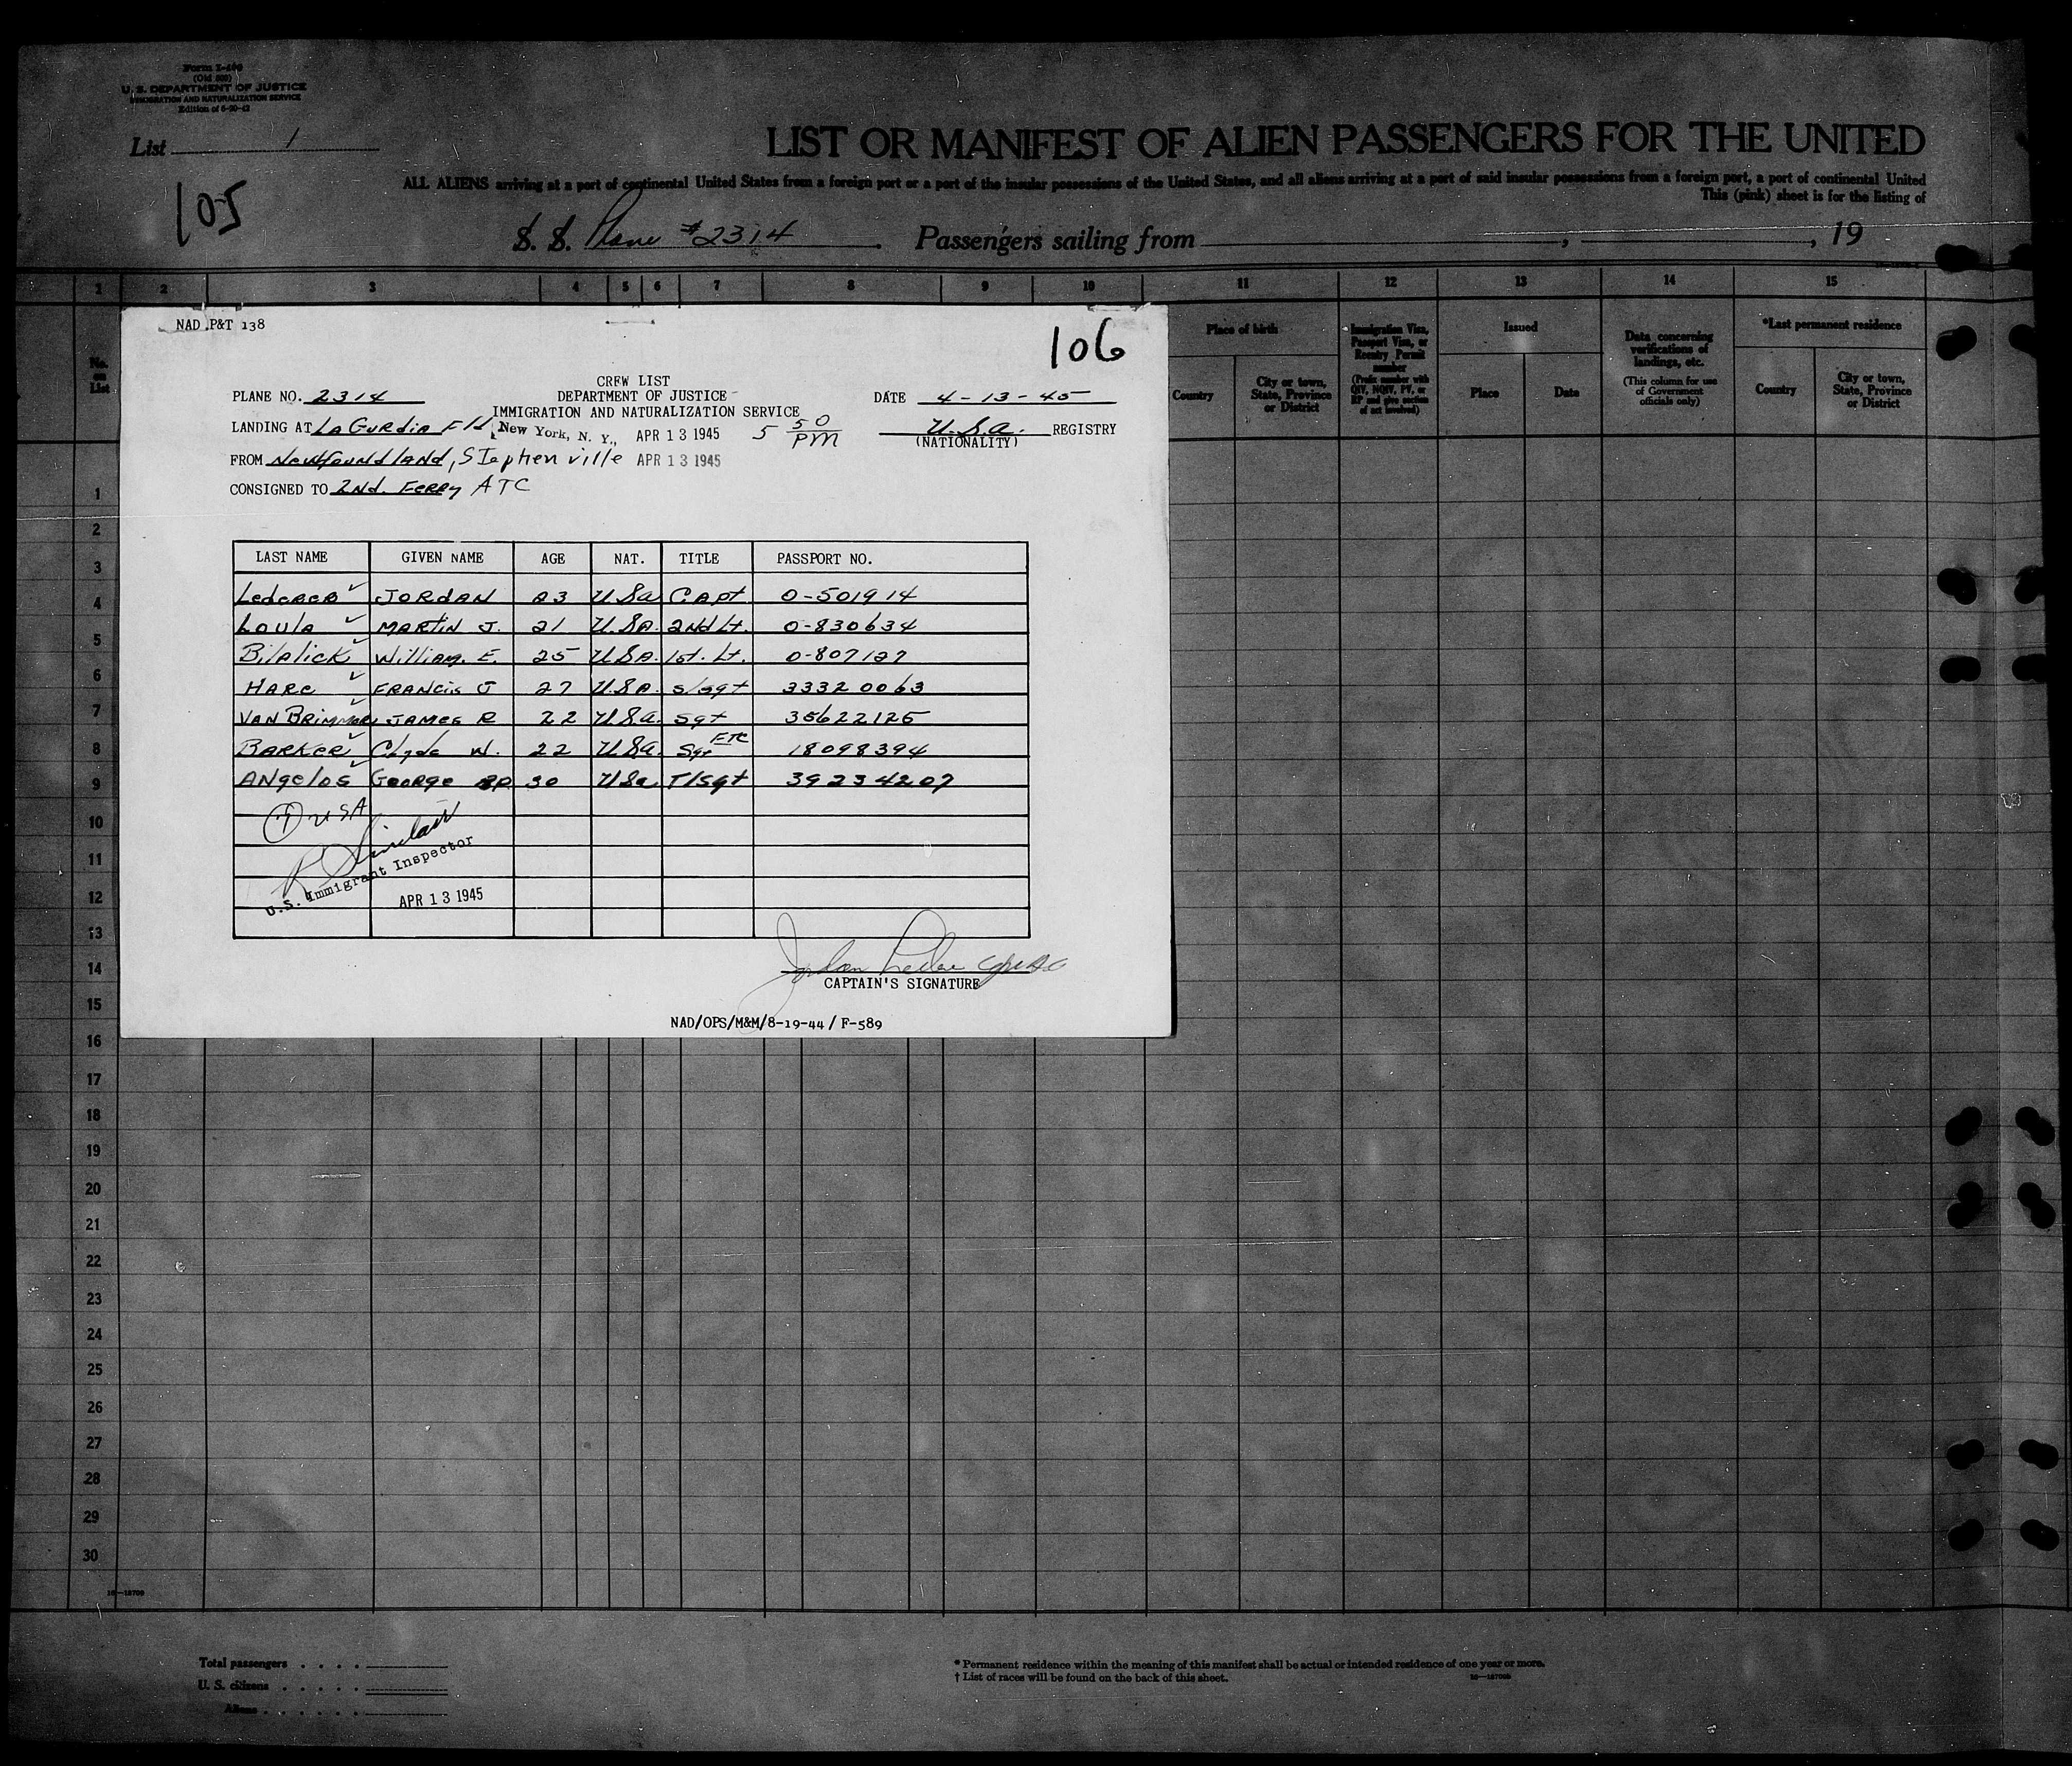 Form I-400
(Old 500)
U. S. DEPARTMENT OF JUSTICE
IMMIGRATION AND NATURALIZATION SERVICE
Edition of 6-20-42
List 1
LIST OR MANIFEST OF ALIEN PASSENGERS FOR THE UNITED
ALL ALIENS arriving at a port of continental United States from a foreign port or a port of the insular possessions of the United States, and all aliens arriving at a port of said insular possessions from a foreign port, a port of continental United
This (pink) sheet is for the listing of
105
S. S. Plane #2314 Passengers sailing from , , 19
1 2 3 4 5 6 7 8 9 10 11 12 13 14 15
No. on List
Place of birth
Country
City or town, State, Province or District
Immigration Visa, Passport Visa, or Reentry Permit number
(Prefix number with QIV, NQIV, PV, or RP and give section of act involved)
Issued
Place
Date
Data concerning verifications of landings, etc.
(This column for use of Government officials only)
*Last permanent residence
Country
City or town, State, Province or District
NAD P&T 138
106
CREW LIST
PLANE NO. 2314 DEPARTMENT OF JUSTICE DATE 4-13-45
IMMIGRATION AND NATURALIZATION SERVICE
LANDING AT La Gurdia Fld New York, N. Y., APR 13 1945 5 50 PM U.S.A. REGISTRY
(NATIONALITY)
FROM Newfoundland, Stephenville APR 13 1945
CONSIGNED TO 2nd. Ferry ATC
LAST NAME GIVEN NAME AGE NAT. TITLE PASSPORT NO.
Lederer JORDAN 23 USa Capt. 0-501914
Loula MARTIN J. 21 U.SA. 2nd Lt. 0-830634
Bilalick William. E. 25 USA. 1st. Lt. 0-807127
HARE FRANCIS J 27 U.SA. S/Sgt 33320063
VAN BRIMMER JAMES R 22 USa. Sgt 35622125
BARKER Clyde W. 22 USa. Sgt ETC 18098394
ANgelos George 30 USa T/Sgt 39234207
7 USA
R Sinclair
U.S. Immigrant Inspector
APR 13 1945
Jordan Lederer
CAPTAIN'S SIGNATURE
NAD/OPS/M&M/8-19-44 / F-589
1
2
3
4
5
6
7
8
9
10
11
12
13
14
15
16
17
18
19
20
21
22
23
24
25
26
27
28
29
30
16—18709
Total passengers . . . .
U. S. citizens . . . . .
Aliens . . . . . .
* Permanent residence within the meaning of this manifest shall be actual or intended residence of one year or more.
† List of races will be found on the back of this sheet.